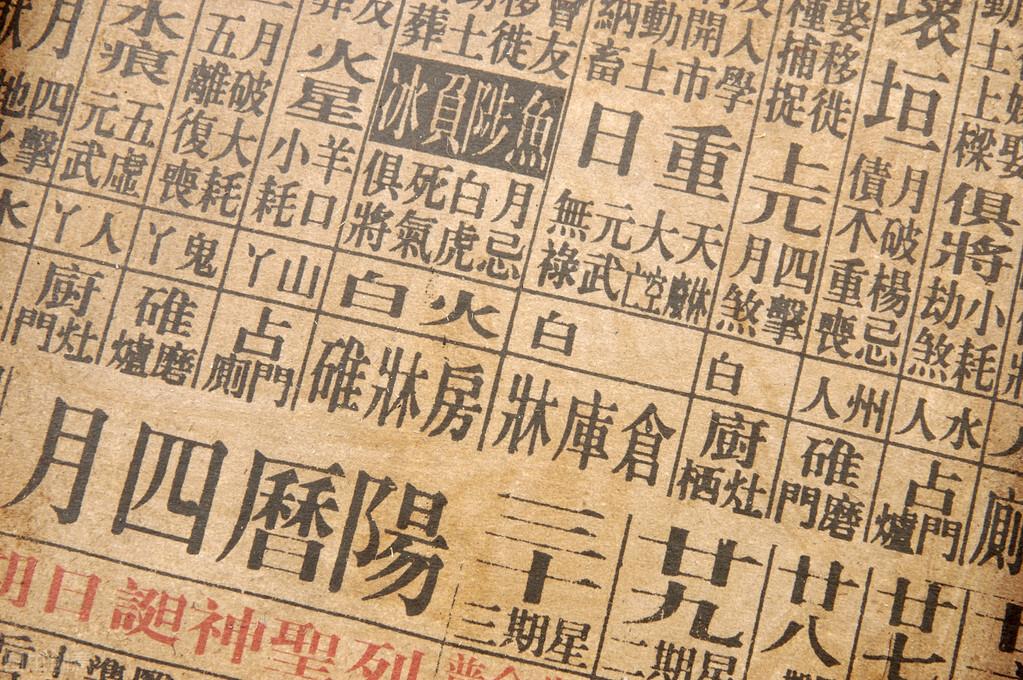 俱將
小耗
劫煞
水人
占門爐
廿七
壞垣
月破楊忌
債不重喪
州人
碓磨門
廿八
娶移徙
種捕捉
上兀
四擊
月煞
白
廚灶栖
廿九
星期二
人學
開市
動土
納畜
重日
大空亡
元武
無祿
白
倉庫牀
三十
星期三
會友
移徙
葬
魚陟負冰
月忌
白虎
死氣
俱將
火白
房牀碓
火星
羊口
小耗
山丫
占門廁
月破大耗
五離復喪
鬼丫
碓磨爐
水痕
五虛
元武
人丫
廚灶門
四擊
水
陽曆四月
列聖神誕日期